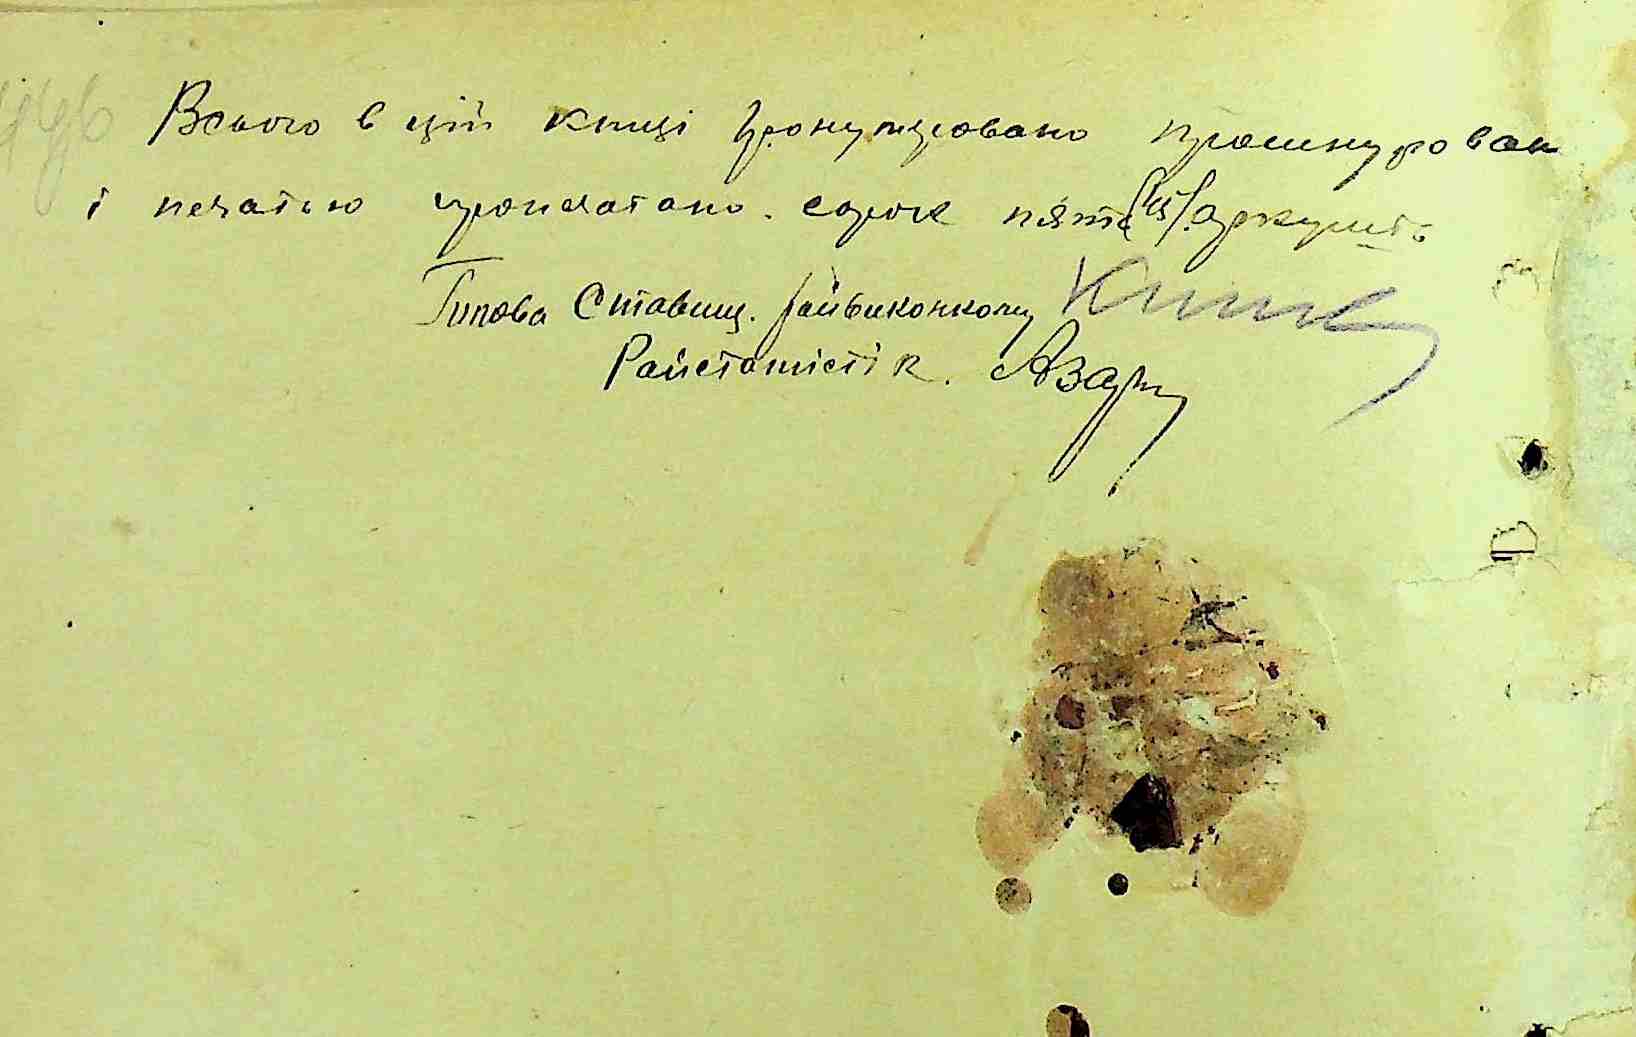 Всього в цій книзі пронумеровано прошнурован
і печатью пропечатано. сорок пять (45) аркушів
Голова Ставищ. райвиконкому
Райстатистік. Азар